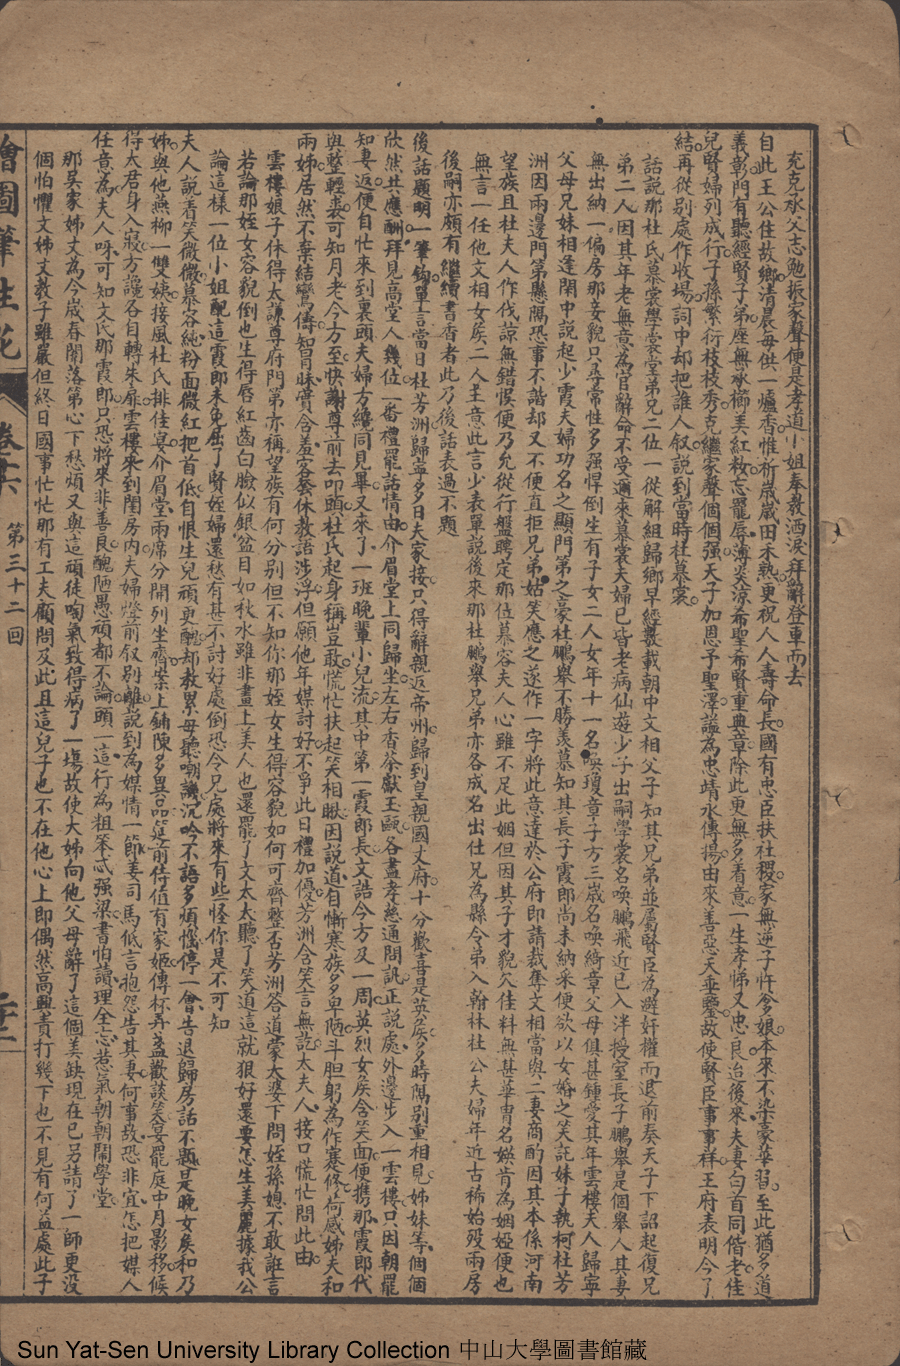 充克承父志勉振家聲便是孝道小姐奉教洒淚拜辭登車而去
自此王公住故鄉清晨每供一爐香惟祈歲歲田禾熟更祝人人壽命長國有忠臣扶社稷家無逆子忤爹娘本來不染豪華習至此猶多道
義彰門有聽經賢子弟座無承櫛美紅妝忘寵辱薄炎涼希聖希賢重典章除此更無多着意一生孝悌又忠良治後來夫妻白首同偕老佳
兒賢婦列成行子孫繁衍枝枝秀克繼家聲個個强天子加恩予聖澤謚為忠靖永傳揚由來善惡天垂鑒故使賢臣事事祥王府表明今了
結再從别處作收場詞中却把誰人叙說到當時杜慕裳
話說那杜氏慕裳學裳堂弟兄二位一從解組歸鄉早經數載朝中文相父子知其兄弟並屬賢臣為避奸權而退前奏天子下詔起復兄
弟二人因其年老無意為官辭命不受邇來慕裳夫婦已皆老病仙遊少子出嗣學裳名喚鵬飛近已入泮授室長子鵬舉是個舉人其妻
無出納一偏房那妾貌只尋常性多强悍倒生有子女二人女年十一名喚瓊章子方三歲名喚綺章父母俱甚鍾愛其年雲樓夫人歸寧
父母兄妹相逢閒中說起少霞夫婦功名之顯門第之豪杜鵬舉不勝羨慕知其長子霞郎尚未納采便欲以女婚之笑託妹子執柯杜芳
洲因兩邊門第懸隔恐事不諧却又不便直拒兄弟姑笑應之遂作一字將此意達於公府即請裁奪文相當與二妻商酌因其本係河南
望族且杜夫人作伐諒無錯悮便乃允從行盤聘定那伍慕容夫人心雖不足此姻但因其子才貌欠佳料無甚華冑名媒肯為姻婭便也
無言一任他文相女侯二人主意此言少表單說後來那杜鵬舉兄弟亦各成名出仕兄為縣令弟入翰林社公夫婦年近古稀始歿兩房
後嗣亦頗有繼續書香者此乃後話表過不題
後話題明一筆鈎單言當日杜芳洲歸寧多日夫家接只得辭親返帝州歸到皇親國丈府十分歡喜是英侯多時隔别重相見姊妹等個個
欣然共應酬拜見高堂人幾位一番禮罷話情由介眉堂上同歸坐左右香茶獻玉甌各盡孝慈通問訊正說處外邊步入一雲樓只因朝罷
知妻返便自忙來到裏頭夫婦方纔同見畢又來了一班晚輩小兒流其中第一霞郎長文誥今方及一周英烈女侯含笑面便携那霞郎代
與整輕裘可知月老今方至快謝尊前去叩頭杜氏起身稱豈敢慌忙扶起笑相眼因說道自慚寒族多卑陋斗胆躬為作蹇修荷感姊夫和
兩姊居然不棄結鸞儔知冒昧實含羞客套休教語涉浮但願他年媒討好不爭此日禮加優芳洲含笑言無訖太夫人接口慌忙問此由
雲樓娘子休得太謙尊府門第亦稱望族有何分别但不知你那姪女生得容貌如何可齊整否芳洲答道蒙太婆下問姪孫媳不敢誑言
若論那姪女容貌倒也生得唇紅齒白臉似銀盆目如秋水雖非畫上美人也還罷了文太太聽了笑道這就狠好還要怎生美麗據我公
論這樣一位小姐配這霞郎未免屈了賢姪婦還愁有甚不討好處倒恐今兄處將來有些怪你是不可知
夫人說着笑微微慕容純粉面微紅把首低自恨生兒頑更醜却教累母聽嘲譏沉吟不語多煩惱停一會告退歸房話不題是晚女侯和乃
姊與他燕柳一雙姨接風杜氏排佳宴介眉堂兩席分開列坐齊案上鋪陳多異品筵前侍值有家姬傳杯弄盞歡談笑宴罷庭中月影移候
得太君身入寢方讓各自轉朱扉雲樓來到閨房内夫婦燈前叙别離說到為媒情一節姜司馬低言抱怨告其妻何事故恐非宜怎把媒人
任意為夫人呀可知文氏那霞郎只恐將來非善良醜陋愚頑都不論頭一這行為粗笨忒强梁書怕讀理全忘惹氣朝朝鬧學堂
那吴家姊丈為今歲春闈落第心下愁煩又與這頑徒啕氣致得病了一塲故使大姊向他父母辭了這個美缺現在已另請了一師更没
個怕懼文姊丈教子雖嚴但終日國事忙忙那有工夫顧問及此且這兒子也不在他心上即偶然高興責打幾下也不見有何益處此子
繪圖筆生花 卷六 第三十二回